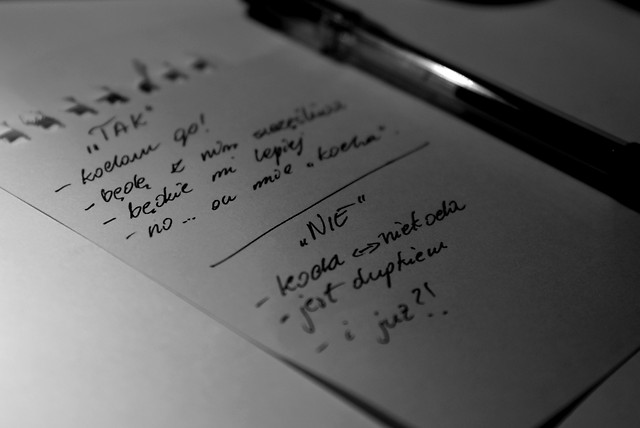 „TAK"
- kocham go!
- będę z nim szczęśliwa
- będzie mi lepiej
- no... on mnie „kocha".
„NIE"
- kocha <-> niekocha
- jest dupkiem
- i już?!